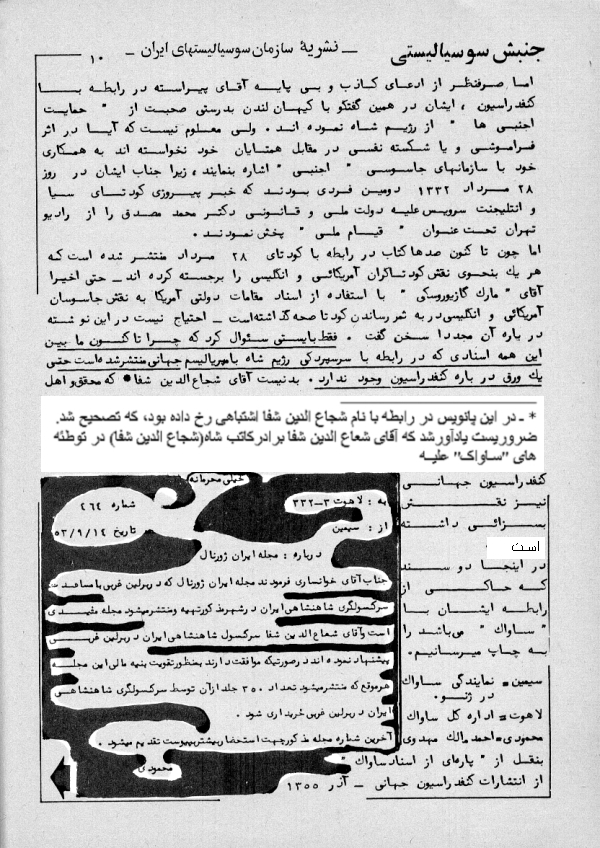 جنبش سوسیالیستی
ـ نشریهٔ سازمان سوسیالیستهای ایران ـ
۱۰
اما صرفنظر از ادعای کاذب و بی پایه آقای پیراسته در رابطه بـا
کنفدراسیون ، ایشان در همین گفتگو با کیهان لندن بدرستی صحبت از " حمایت
اجنبی ها " از رژیم شاه نموده انـد . ولی معلوم نیست که آیـا در اثر
فراموشی و یا شکسته نفسی در مقابل همتایان خود نخواسته اند به همکاری
خود با سازمانهای جاسوسی " اجنبی " اشاره بنمایند ، زیرا جناب ایشان در روز
۲۸ مرداد ۱۳۳۲ دومین فردی بـودنـد که خبر پیروزی کودتـای سیـا
و انتلیجنت سرویس علیه دولت ملی و قـانـونی دکتر محمد مصدق را از رادیو
تهران تحت عنوان " قیـام ملی " پخش نمودنـد .
اما چون تا کنون صدها کتاب در رابطه با کودتای ۲۸ مرداد منتشر شده است که
هر یك بنحوی نقش کودتاگران آمریکائی و انگلیسی را برجسته کرده اند ـ حتی اخیرا
آقای " مارك گازیوروسکی " با استفاده از اسناد مقامات دولتی آمریکا به نقش جاسوسان
آمریکائی و انگلیسی در به ثمر رساندن کودتا صحه گذاشته است ـ احتیاج نیست در این نوشته
در باره آن مجددا سخن گفت . فقط بایستی سئوال کرد که چـرا تـا کنـون ما بـین
این همه اسنادی که در رابطه با سرسپردگی رژیم شاه بامپریالیسم جهانی منتشر شده است حتی
یك ورق در باره کنفدراسیون وجود ندارد . بد نیست آقای شجاع الدین شفا* که محقق و اهل
* ـ در این پانویس در رابطه با نام شجاع الدین شفا اشتباهی رخ داده بود، که تصحیح شد.
ضروریست یادآور شد که آقای شعاع الدین شفا برادر کاتب شاه(شجاع الدین شفا) در توطئه
های "ساواک" علیه
کنفدراسیون جهـانـی
نـیـز نقـش
بسـزائی داشته
است
در اینجا دو سنـد
که حـاکـی از
رابطه ایشان بـا
" ساواك " می‌باشد را
به چاپ میرسانیـم.
سیمین = نمایندگی ساواك
در ژنـو .
لاهوت = اداره کل ساواك
محمودی = احمد مالك مهدوی
بنقـل از " پاره‌ای از اسناد ساواك "
از انتشارات کنفدراسیون جهـانی ـ آذر ۱۳۵۵
خیلی محرمانه
به : لاهوت ۳-۳۳۲
شماره ۲۶۴
از : سیمین
تاریخ ۵۳/۹/۱۴
درباره : مجله ایران ژورنال
جناب آقای خوانساری فرمودند مجله ایران ژورنال که در برلین غربی با مساعدت
سرکنسولگری شاهنشاهی ایران در شهر مذکور تهیه و منتشر میشود مجله مفیـدی
است و آقای شعاع الدین شفا سرکنسول شاهنشاهی ایران در برلین غربـی
پیشنهاد نموده اند در صورتیکه موافقت دارند بمنظور تقویت بنیه مالی این مجلـه
هر موقع که منتشر میشود تعداد ۳۵۰ جلد از آن توسط سرکنسولگری شاهنشاهی
ایران در برلین غربی خریداری شود .
آخرین شماره مجله مذکور جهت استحضار بیشتر بپیوست تقدیم میشود .
محمودی